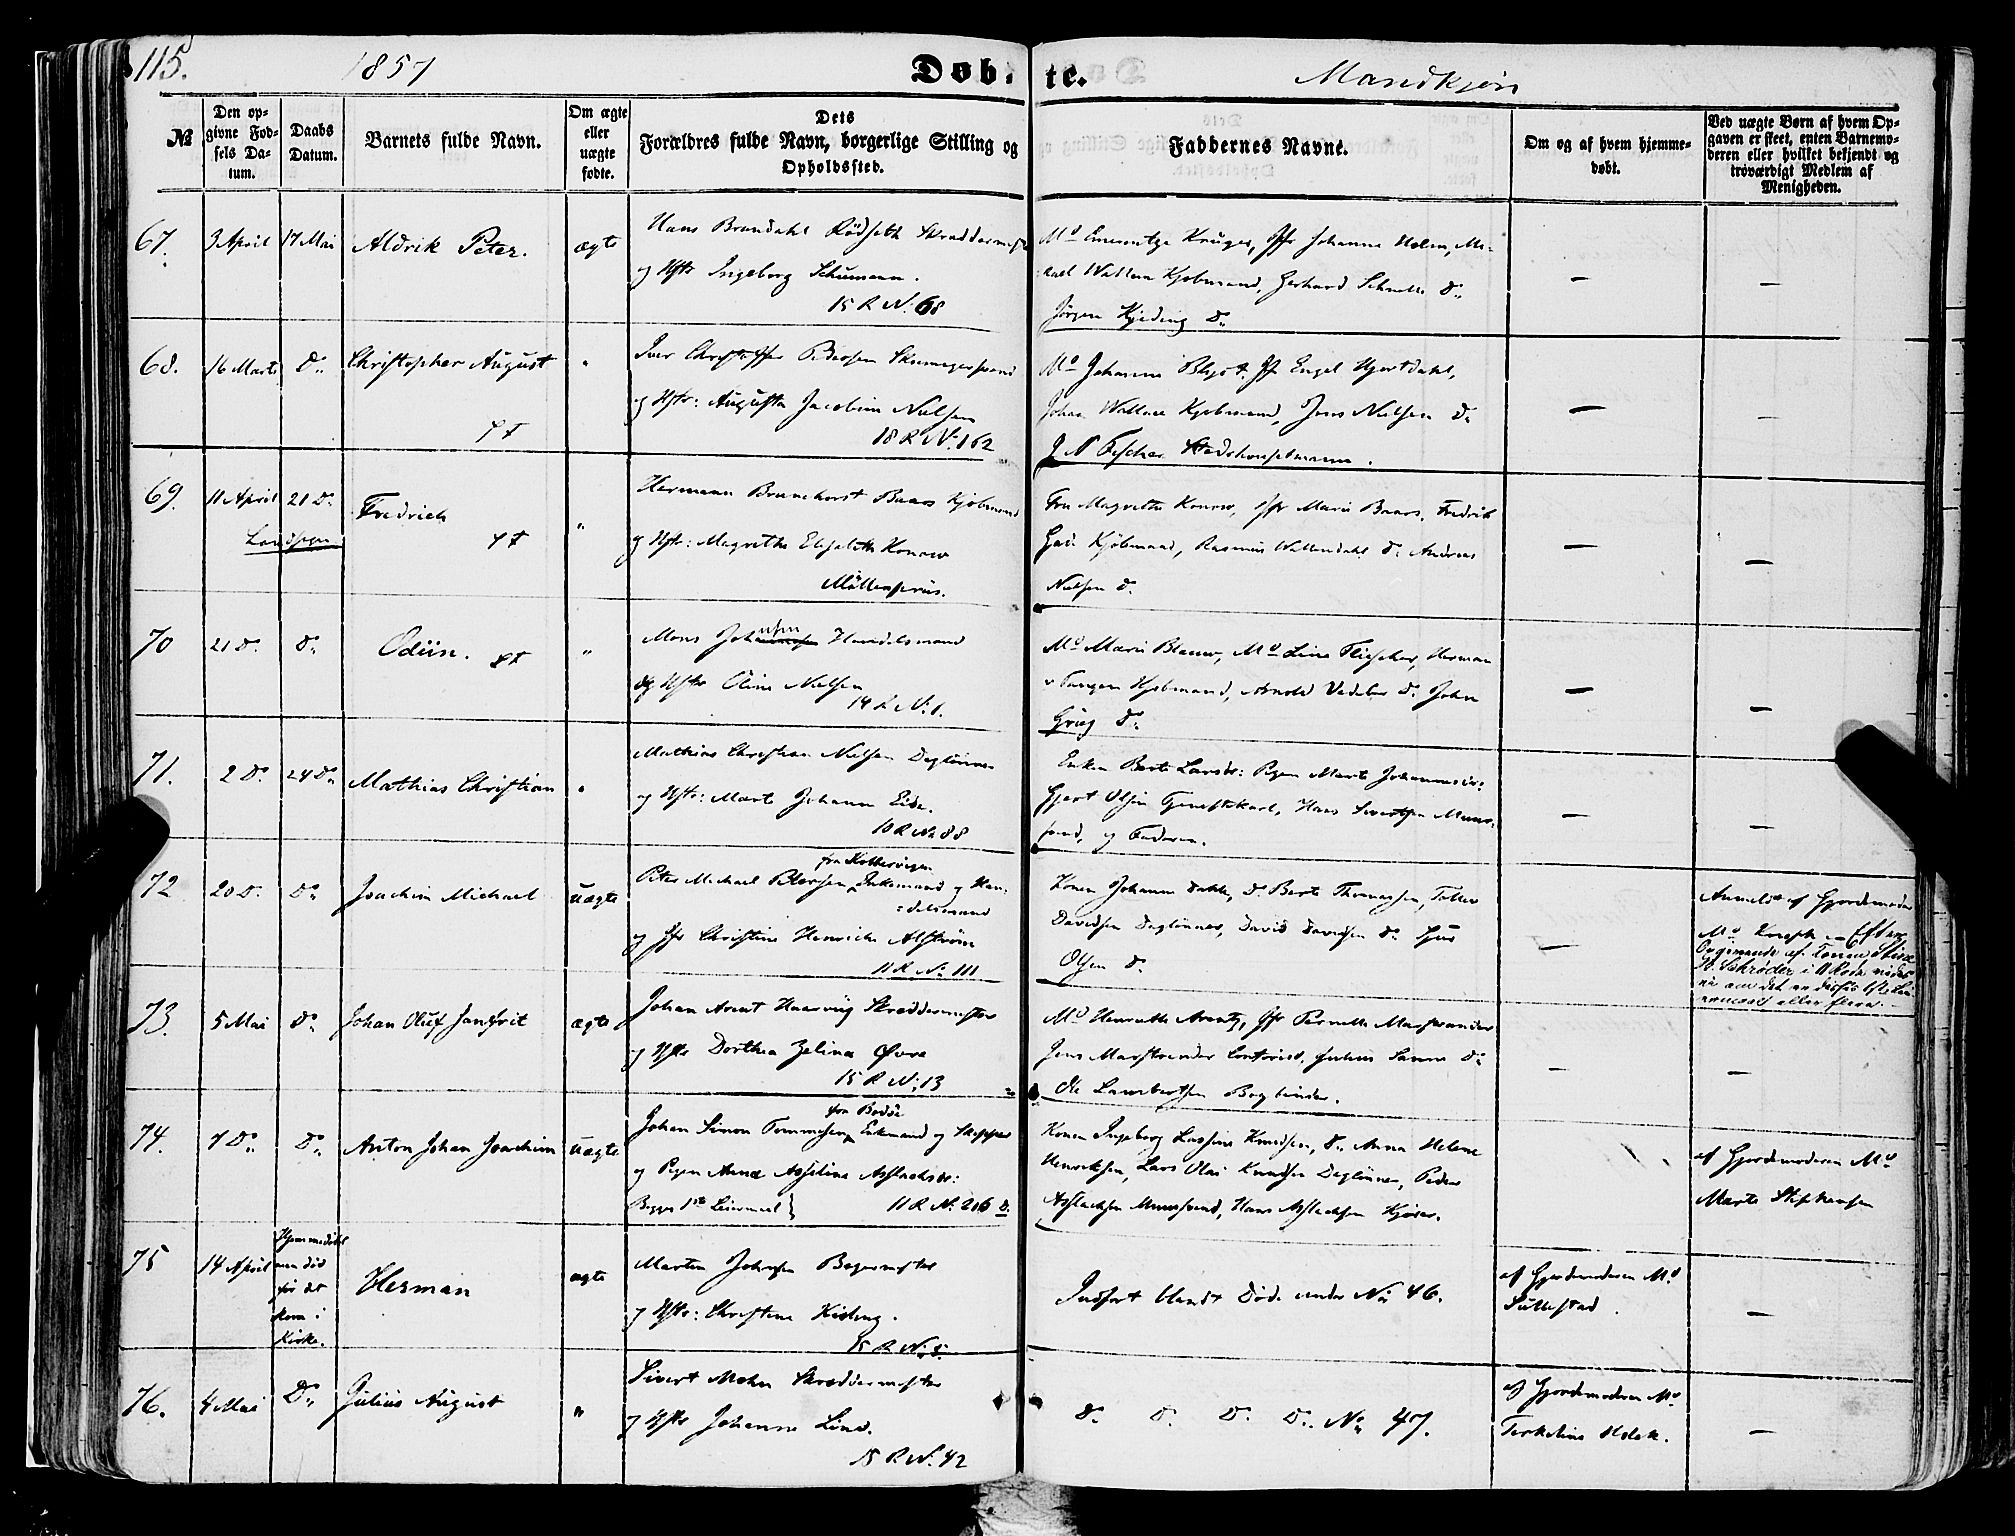 115. 1857 Døbte. Mandkjøn
№
Den op-
givne Fød-
sels Da-
tum.
Daabs
Datum.
Barnets fulde Navn.
Om ægte
eller
uægte
fødte.
Dets
Forældres fulde Navn, borgerlige Stilling og
Opholdssted.
Faddernes Navne.
Om og af hvem hjemme-
døbt.
Ved uægte Børn af hvem Op-
gaven er skeet, enten Barnemo-
deren eller hvilket bekjendt og
troværdigt Medlem af
Menigheden.
67. 3 April 17 Mai Aldrik Peter. ægte
Hans Brundahl Rødseth Skræddermester
og Hstr Ingeborg Schumann.
15 R N. 68
Johanne Holm,
Kjøbmand, Gerhard Do
Jørgen Do
—
—
68. 16 Marts Do Christopher August "
Iver Christoffer Pedersen Skomagersvend
og Hstr: Augusta Jacobine Nielsen
18 R N. 162
Md Johanne Jfr Engel Hjortdahl,
Johan Wallace Kjøbmand, Jens Nielsen Do
J N Fischer
—
—
69. 11 April 21 Do Fredrich "
Landsogn
Hermann Brunchorst Baars Kjøbmand
og Hstr: Magrethe Elisabeth Konow
Møllenpriis.
Fru Magrethe Konow, Jfr Marie Baars, Fredrik
Kjøbmand, Rasmus Wallendahl Do Andreas
Nielsen Do
—
—
70 21 Do Do Odiin. "
Mons Johannesen Handelsmand
og Hstr Oline Nielsen
14 R N. 1.
Md Marie Blauw, Md Line Fleischer, Herman
v Tangen Kjøbmand, Arnold Vedeler Do John
Grieg Do
—
—
71. 2 Do 24 Do Mathias Christian "
Mathias Christian Nielsen Dagløner
og Hstr: Marte Johanne Eide.
10 R No 88
Enken Berte Larsdr: Pigen Marte Johannesdr:
Gjert Olsen Hans Sivertsen Muur-
svend, og Faderen.
—
—
72 20 D. Do Joachim Michael uægte
fra Kobbervigen
Peter Michael Petersen Enkemand og Han-
:delsmand
og Jfr Christine Henricke Alstrøm
11 R No 111
Konen Johanne Do Berte Thomassen, Tollev
Davidsen Dagløner, David Davidsen Do
Olsen Do
—
Anmeldt af Gjordemoder
Md — Efter
Opgivende af Konen Stine
Schrøder i 11 Rode vides
ei om det er deres 1ste Lei-
ermaal eller flere.
73. 5 Mai Do Johan Oluf ægte
Johan Arent Skræddermester
og Hstr Dorthea Zelina
15 R No 13
Md Henriette Arentz, Jfr Pernelle Marstrander
Jens Marstrander Contorist, Julius Do
Ole Lambertsen Bogbinder.
—
—
74. 7 Do Do Anton Johan Joachim uægte
fra Bodøe
Johan Simon Tommesen Enkmand og Skipper
og Pigen Anne Asseline Aslachsdr:
Begges 1ste Leiermaal} 11 R No. 216 D.
Konen Ingeborg Knudsen, Do Anna Helene
Henriksen, Lars Olai Knudsen Dagløner, Peder
Aslachsen Muursvend, Hans Aslachsen
af Gjordemoderen Md
Marte Stephensen
75 14 April Hjemmedøbt
men død
før det
kom i
Kirke.
Herman ægte
Martin Johnsen Bagermester
og Hstr: Christine Kisling.
15 R No 5.
Indført blandt Døde under No 46.
af Gjordemoderen Md
Sullestad.
—
76. 4 Mai Do Julius August "
Sivert Mohn Skræddermester
og Hstr Johanne Lind.
15 R N. 42
Do Do Do Do No 47.
af Gjordemoderen Md
Terkeline Holck.
—